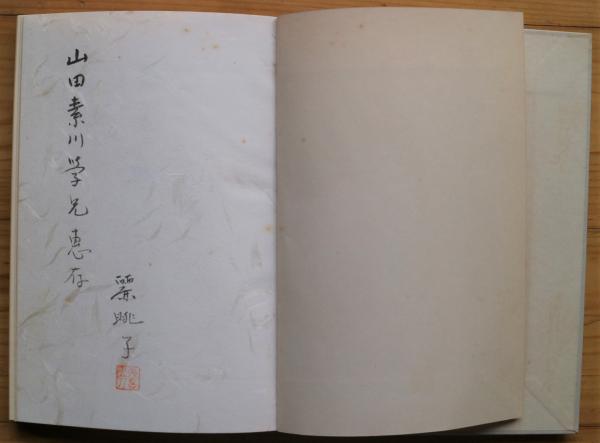 山田素川学兄恵存
眺子